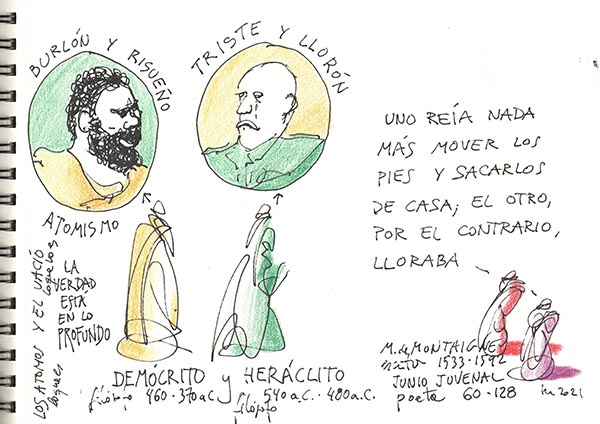 BURLÓN Y RISUEÑO
TRISTE Y LLORÓN
UNO REÍA NADA
MÁS MOVER LOS
PIES Y SACARLOS
DE CASA; EL OTRO,
POR EL CONTRARIO,
LLORABA
ATOMISMO
LOS ATOMOS Y EL VACÍO
LA
VERDAD
ESTA
EN LO
PROFUNDO
DEMÓCRITO y HERÁCLITO
filósofo 460·370 a.C.
540 a.C.·480 a.C.
filósofo
M. de MONTAIGNE
1533·1592
JUNIO JUVENAL
poeta 60·128
2021